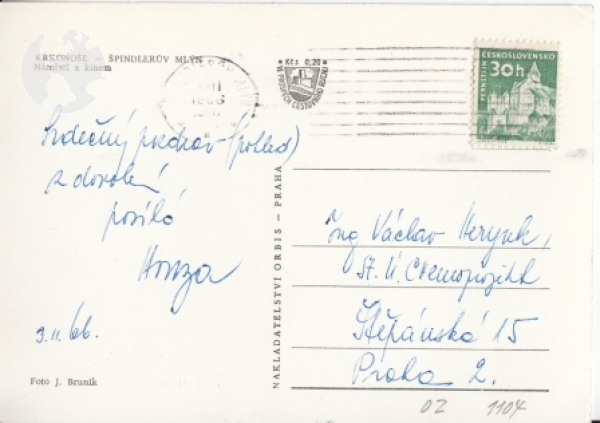 KRKONOŠE – ŠPINDLERŮV MLÝN
Náměstí s kinem
Kčs 0,20
ČESKOSLOVENSKO
30h
PERNŠTEJN
Srdečný pozdrav (pohled)
z dovolení
posílá
Honza
3.II.66.
Foto J. Bruník
NAKLADATELSTVÍ ORBIS – PRAHA
Ing Václav
Štěpánská 15
Praha 2.
OZ 1104